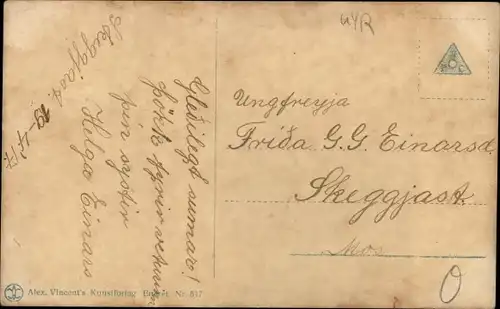 Skeggjast.
29-4-17
Gleðilegt sumar!
þökk fyrir veturinn
þin systir
Helga Einars
UYR
Ungfreyja
Friða G. G. Einarsd
Skeggjast.
Mos
O
Alex. Vincent's Kunstforlag Eneret. Nr. 817